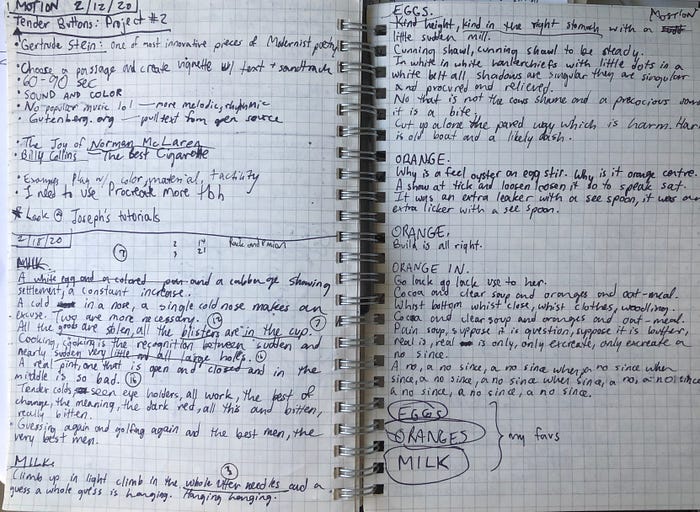 MOTION 2/12/20
Tender Buttons: Project #2
• Gertrude Stein: one of most innovative pieces of Modernist poetry
• Choose a passage and create vignette w/ text + soundtrack
• 60-90 sec
• SOUND AND COLOR
• No popular music lol — more melodic, rhythmic
• Gutenberg.org — pull text from open source
• The Joy of Norman McLaren
• Billy Collins — The Best Cigarette
• Examples play w/ color, material, tactility
• I need to use Procreate more tbh
* Look @ Joseph's tutorials
2/18/20
MILK.
A white egg and a colored pan and a cabbage showing
settlement, a constant increase.
A cold in a nose, a single cold nose makes an
excuse. Two are more necessary.
All the goods are stolen, all the blisters are in the cup.
Cooking, cooking is the recognition between sudden and
nearly sudden very little and all large holes.
A real pint, one that is open and closed and in the
middle is so bad.
Tender colds, seen eye holders, all work, the best of
change, the meaning, the dark red, all this and bitten,
really bitten.
• Guessing again and golfing again and the best men, the
very best men.
MILK.
Climb up in light climb in the whole utter needles and a
guess a whole guess is hanging. Hanging hanging.
EGGS.
MOTION
Kind height, kind in the right stomach with a
little sudden mill.
Cunning shawl, cunning shawl to be steady.
In white in white hankerchiefs with little dots in a
white belt all shadows are singular they are singular
and procured and relieved.
No that is not the cows shame and a precocious
it is a bite.
Cut up alone the paved way which is harm. Harm
is old boat and a likely dash.
ORANGE.
Why is a feel oyster an egg stir. Why is it orange centre.
A show at tick and loosen loosen it so to speak sat.
It was an extra leaker with a see spoon, it was an
extra licker with a see spoon.
ORANGE.
Build is all right.
ORANGE IN.
Go lack go lack use to her.
Cocoa and clear soup and oranges and oat-meal.
Whist bottom whist close, whist clothes, woodling.
Cocoa and clear soup and oranges and oat-meal.
Pain soup, suppose it is question, suppose it is butter,
real is, real is only, only excreate, only excreate a
no since.
A no, a no since, a no since when, a no since when
since, a no since, a no since when since, a no, a no since
a no since, a no since, a no since.
EGGS
ORANGES
MILK
my favs